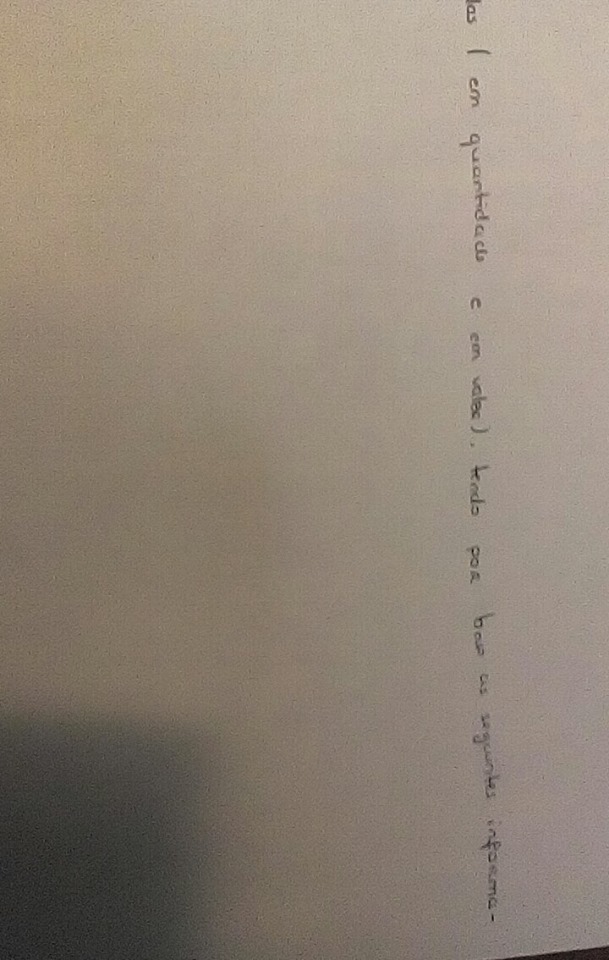 das ( em quantidade e em valor), tendo por base as seguintes informa-